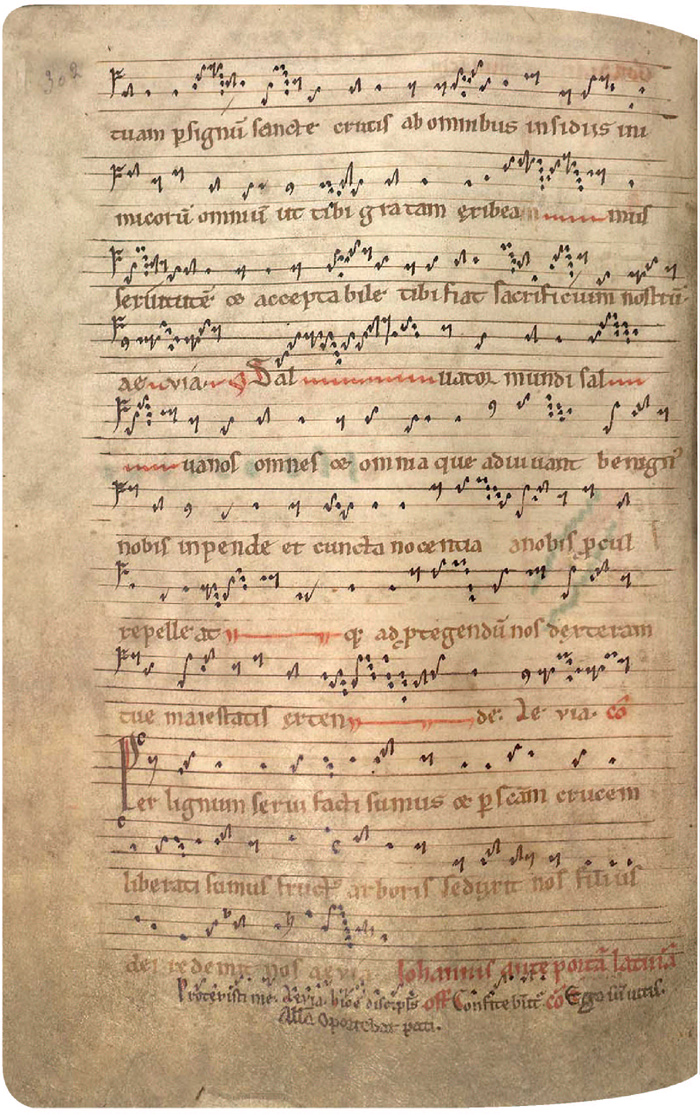 302
tuam p signū sancte crucis ab omnibus insidiis ini
micorū omniū ut tibi gratam exibea mus
seruitutē et acceptabile tibi fiat sacrificium nostrū
aeuia. Sal uator mundi sal
uanos omnes et omnia que adiuuant benigne
nobis inpende et cuncta nocentia a nobis procul
repelle at q; ad protegendū nos dexteram
tue maiestatis exten de. Ae via. cō
Per lignum serui facti sumus et p scam crucem
liberati sumus fruct arboris seduxit nos filius
dei redemit nos aeuia Johannis ante portā latinā
Protexisti me. Aevia. off Confitebūt cō Ego sū uitis.
Alla Oportebat pati.